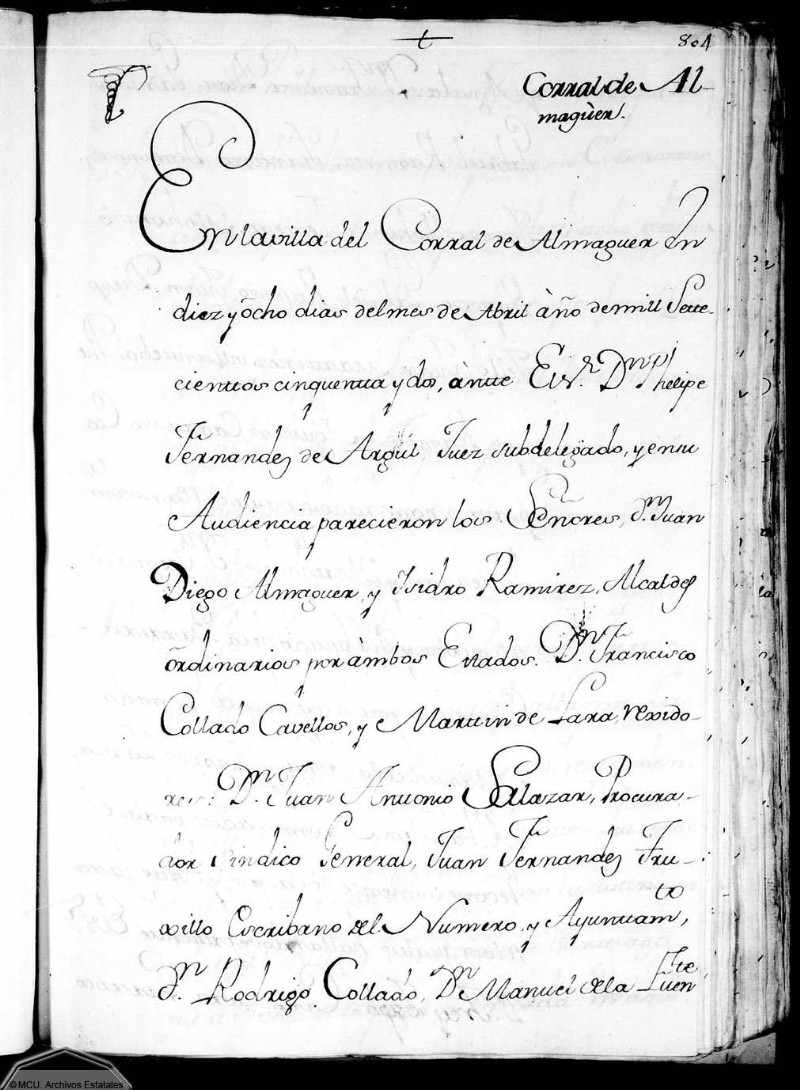 804
Corral de Al-
maguer.
En la villa del Corral de Almaguer En
diez y ocho dias del mes de Abril año de mill Sete-
cientos cinquenta y dos, ànte El Sr. Dn. Phelipe
Fernandez de Argüil Juez subdelegado, y en su
Audiencia parecieron los Señores, Dn. Juan
Diego Almaguer, y Isidro Ramirez, Alcaldes
òrdinarios por àmbos Estados. Dn. Francisco
Collado Cavellos, y Martin de Lara, rexido-
res: Dn. Juan Antonio Salazar, Procura-
dor Sindico General, Juan Fernandez Tru-
xillo Escribano del Numero, y Ayuntamto,
Dn. Rodrigo Collado, Dn. Manuel de la Fuente
© MCU. Archivos Estatales